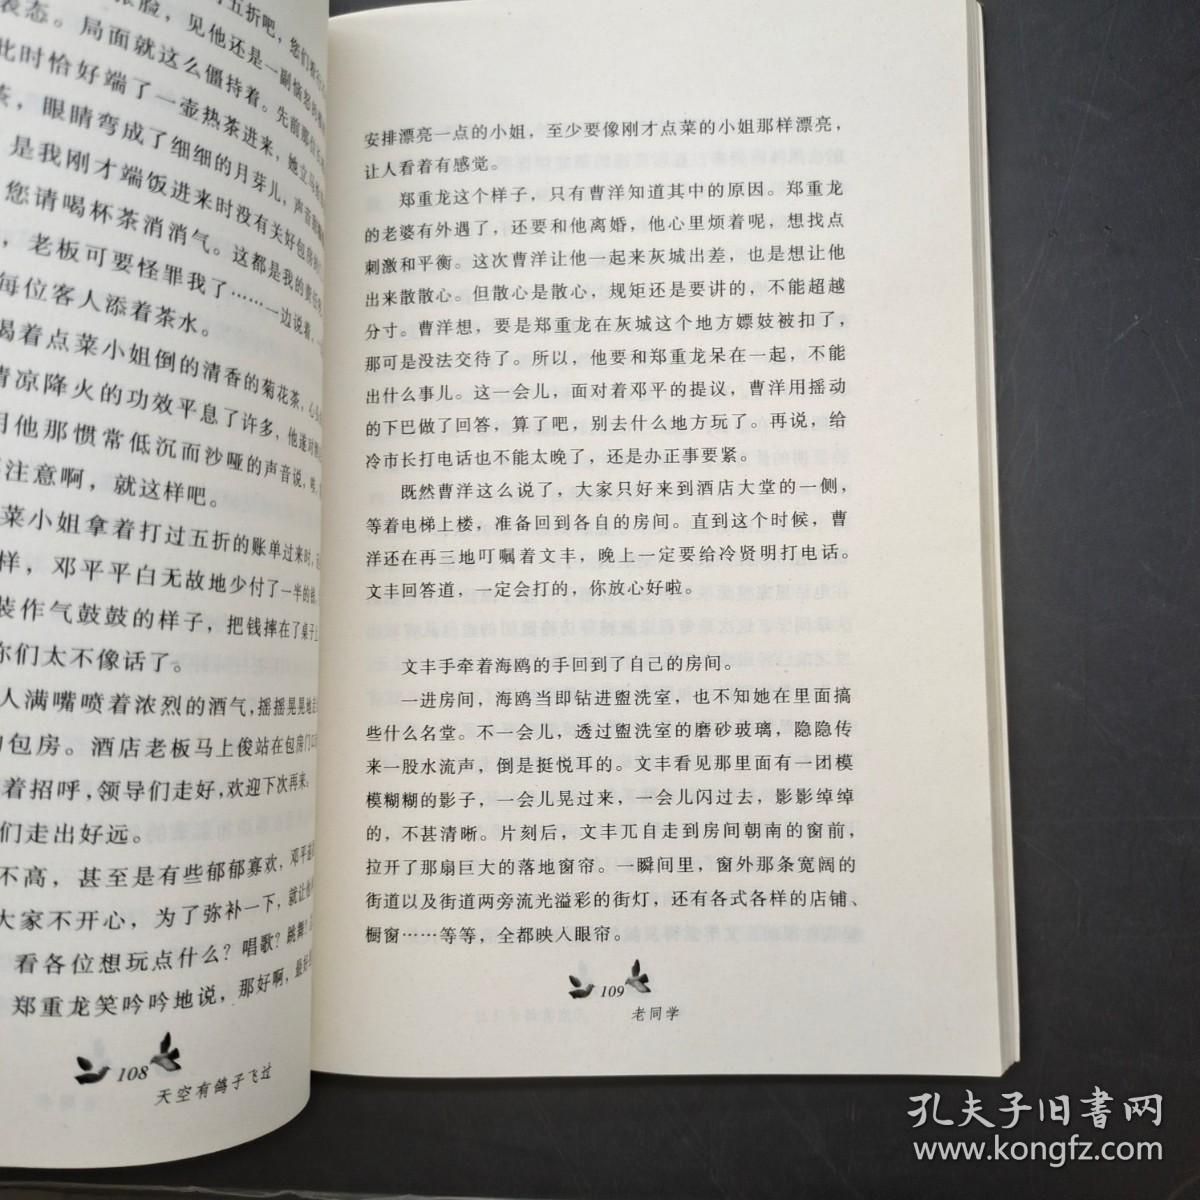 五折吧，您们
张脸，见他还是一副恼怒的
表态。局面就这么僵持着。先前那位
此时恰好端了一壶热茶进来，她立马
茶，眼睛弯成了细细的月芽儿，声音
是我刚才端饭进来时没有关好包房
您请喝杯茶消消气。这都是我的责任
，老板可要怪罪我了……一边说着，一
每位客人添着茶水。
喝着点菜小姐倒的清香的菊花茶，心
清凉降火的功效平息了许多，他遂对
用他那惯常低沉而沙哑的声音说，
注意啊，就这样吧。
菜小姐拿着打过五折的账单过来时，
样，邓平平白无故地少付了一半的钱，
装作气鼓鼓的样子，把钱摔在了桌子上
你们太不像话了。
人满嘴喷着浓烈的酒气，摇摇晃晃地
的包房。酒店老板马上俊站在包房门口
着招呼，领导们走好，欢迎下次再来。
们走出好远。
不高，甚至是有些郁郁寡欢，邓平
大家不开心，为了弥补一下，就让
看各位想玩点什么？唱歌？跳舞？
郑重龙笑吟吟地说，那好啊，最好
108
天空有鸽子飞过
安排漂亮一点的小姐，至少要像刚才点菜的小姐那样漂亮，
让人看着有感觉。
郑重龙这个样子，只有曹洋知道其中的原因。郑重龙
的老婆有外遇了，还要和他离婚，他心里烦着呢，想找点
刺激和平衡。这次曹洋让他一起来灰城出差，也是想让他
出来散散心。但散心是散心，规矩还是要讲的，不能超越
分寸。曹洋想，要是郑重龙在灰城这个地方嫖妓被扣了，
那可是没法交待了。所以，他要和郑重龙呆在一起，不能
出什么事儿。这一会儿，面对着邓平的提议，曹洋用摇动
的下巴做了回答，算了吧，别去什么地方玩了。再说，给
冷市长打电话也不能太晚了，还是办正事要紧。
既然曹洋这么说了，大家只好来到酒店大堂的一侧，
等着电梯上楼，准备回到各自的房间。直到这个时候，曹
洋还在再三地叮嘱着文丰，晚上一定要给冷贤明打电话。
文丰回答道，一定会打的，你放心好啦。
文丰手牵着海鸥的手回到了自己的房间。
一进房间，海鸥当即钻进盥洗室，也不知她在里面搞
些什么名堂。不一会儿，透过盥洗室的磨砂玻璃，隐隐传
来一股水流声，倒是挺悦耳的。文丰看见那里面有一团模
模糊糊的影子，一会儿晃过来，一会儿闪过去，影影绰绰
的，不甚清晰。片刻后，文丰兀自走到房间朝南的窗前，
拉开了那扇巨大的落地窗帘。一瞬间里，窗外那条宽阔的
街道以及街道两旁流光溢彩的街灯，还有各式各样的店铺、
橱窗……等等，全都映入眼帘。
109
老同学
孔夫子旧书网
www.kongfz.com